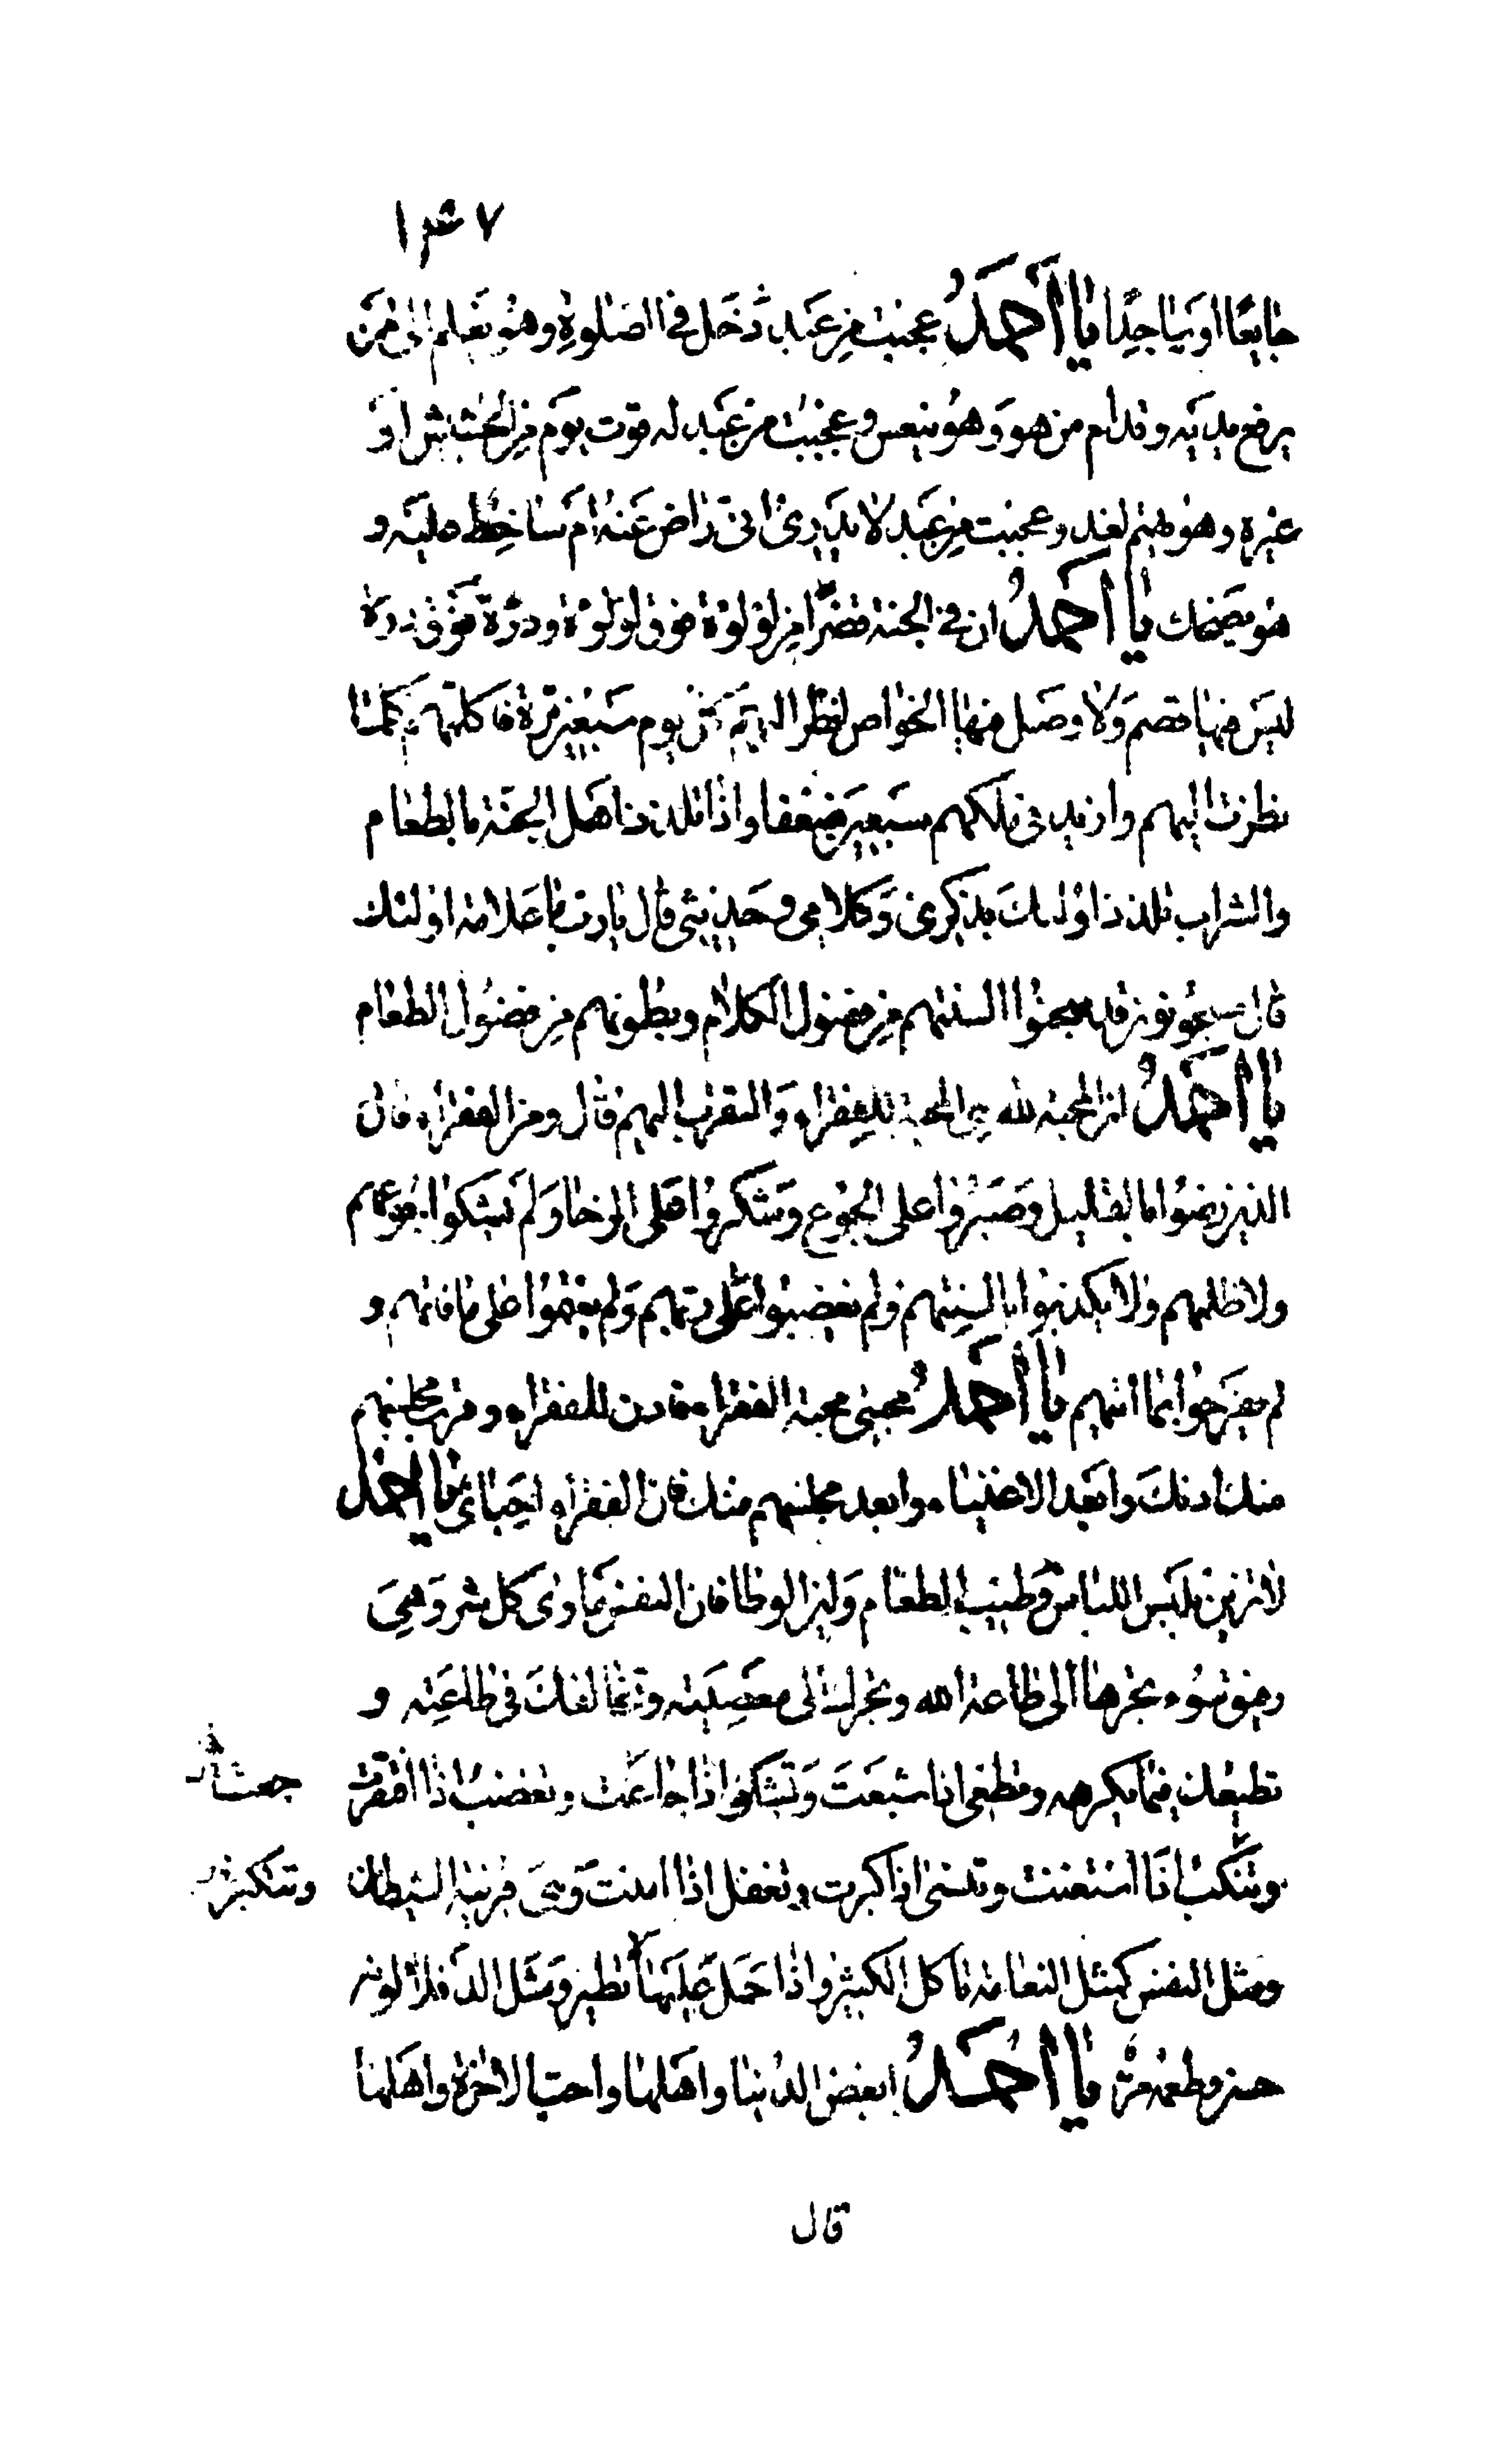 جایعًا او ساجدًا یا احمدُ عجبت من عبد دخل فی الصلوة وهو یعلم الی من
یرفع یدیه وقدام من هو وهو ینعس وعجبت من عبد له قوت یوم من الحشیش او
غیره وهو یهتم لغد وعجبت من عبد لا یدری انی راض عنه ام ساخط علیه و
هو یضحك یا احمدُ ان فی الجنة قصرًا من لؤلؤة فوق لؤلؤة ودرّة فوق درة
لیس فیها قصم ولا وصل فیها الخواص انظر الیهم کل یوم سبعین مرة فاکلمهم کلما
نظرت الیهم وازید فی ملکهم سبعین ضعفا واذا تلذذ اهل الجنة بالطعام
والشراب تلذذ اولئك بذکری وکلامی وحدیثی قال یا رب ما علامة اولئك
قال مسجونون قد سجنوا السنتهم من فضول الکلام وبطونهم من فضول الطعام
یا احمدُ ان المحبة لله هی المحبة للفقراء والتقرب الیهم قال ومن الفقراء قال
الذین رضوا بالقلیل وصبروا علی الجوع وشکروا علی الرخا ولم یشکوا جوعهم
ولا ظلمهم ولا یکذبوا بالسنتهم ولم یغضبوا علی ربهم ولم یغتموا علی ما فاتهم و
لم یفرحوا بما اتیهم یا احمدُ محبتی محبة الفقراء فادن للفقراء وقرب مجلسهم
منك ادنك وابعد الاغنیاء وابعد مجلسهم منك فان الفقراء احبائی یا احمد
لا تزین بلبس اللباس وطیب الطعام ولین الوطا فان النفس ماوی کل شر وهی
رفیق سوء تجرها الی طاعة الله وتجرك الی معصیته وتخالفك فی طاعته و
تطیعك فیما یکره وتطغی اذا شبعت وتشکوا اذا جاعت وتغضب اذا افتقرت
وتتکبر اذا استغنت وتنسی اذا کبرت وتغفل اذا امنت وهی قرینة الشیطان وتتکبر
ومثل النفس کمثل النعامة تاکل الکثیر واذا حمل علیها لا تطیر ومثل الدفلا لونه
حسن وطعمه مرّ یا احمدُ ابغض الدنیا واهلها واحب الاخرة واهلها
قال